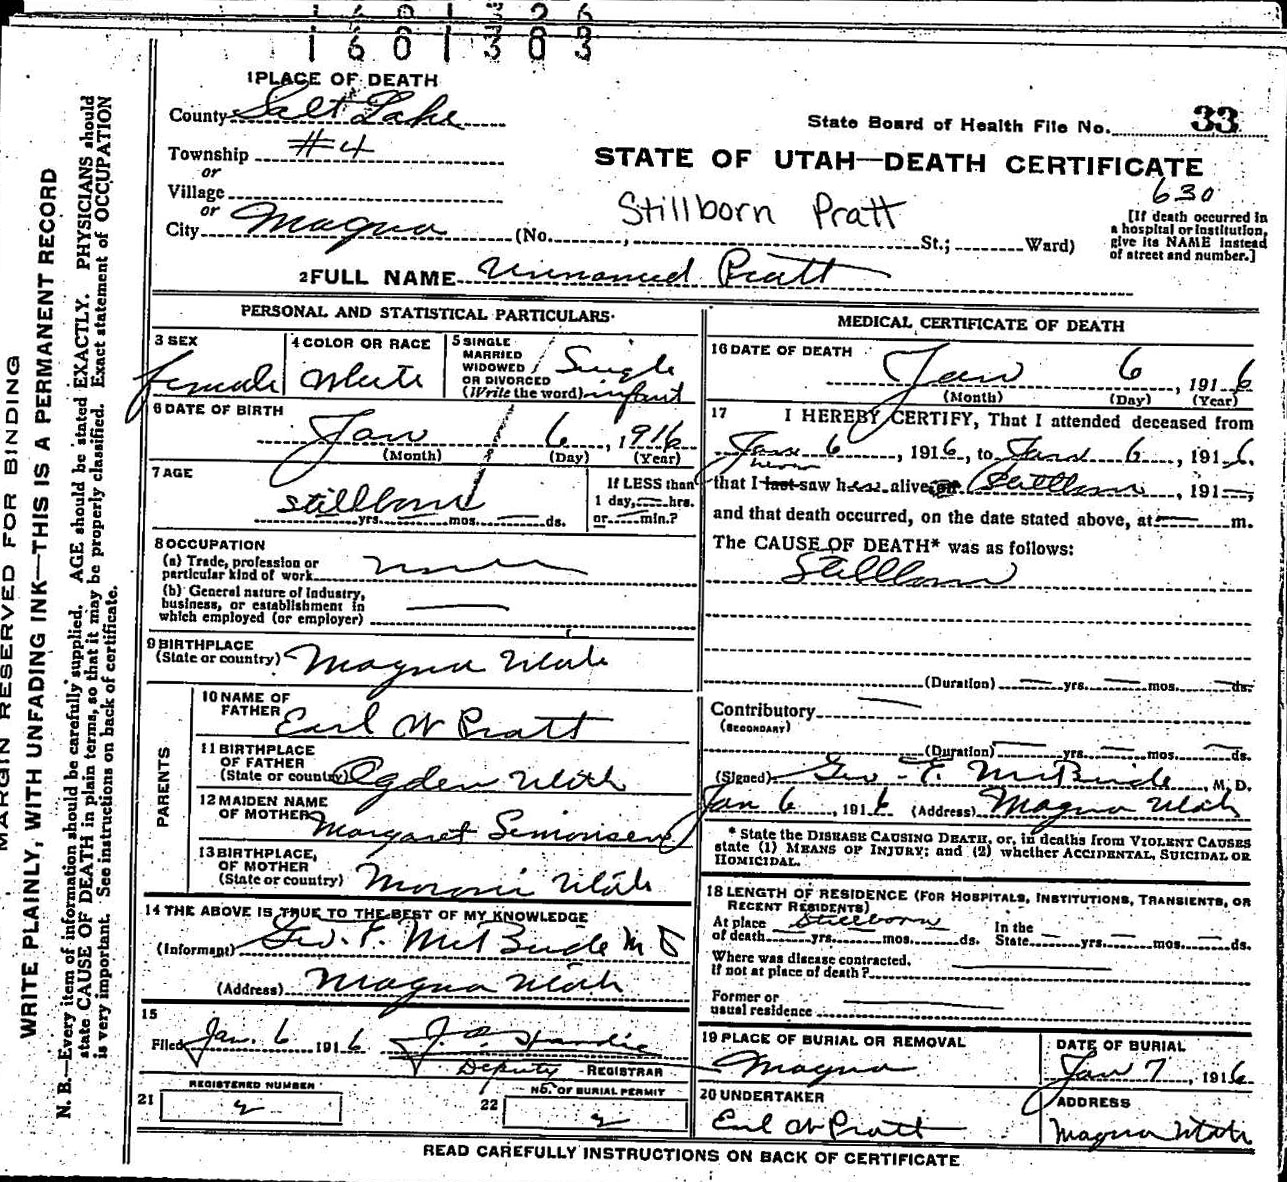 1601303
1 PLACE OF DEATH
County Salt Lake
State Board of Health File No. 33
Township #4
or
STATE OF UTAH—DEATH CERTIFICATE
Village
630
or
Stillborn Pratt
City Magna (No. , St.; Ward)
[If death occurred in
a hospital or institution,
give its NAME instead
of street and number.]
2 FULL NAME Unnamed Pratt
PERSONAL AND STATISTICAL PARTICULARS
3 SEX
female
4 COLOR OR RACE
White
5 SINGLE
MARRIED
WIDOWED
OR DIVORCED
(Write the word)
Single
infant
6 DATE OF BIRTH
Jan 6, 1916
(Month) (Day) (Year)
7 AGE
stillborn
yrs. mos. ds.
If LESS than
1 day, hrs.
or min.?
8 OCCUPATION
(a) Trade, profession or
particular kind of work
(b) General nature of Industry,
business, or establishment in
which employed (or employer)
9 BIRTHPLACE
(State or country) Magna Utah
PARENTS
10 NAME OF
FATHER
Earl W Pratt
11 BIRTHPLACE
OF FATHER
(State or country) Ogden Utah
12 MAIDEN NAME
OF MOTHER Margaret Simonsen
13 BIRTHPLACE,
OF MOTHER
(State or country) Moroni Utah
14 THE ABOVE IS TRUE TO THE BEST OF MY KNOWLEDGE
(Informant) Geo. E. McBride M D
(Address) Magna Utah
15
Filed Jan. 6 1916
Deputy REGISTRAR
REGISTERED NUMBER
21 2
No. OF BURIAL PERMIT
22 2
MEDICAL CERTIFICATE OF DEATH
16 DATE OF DEATH
Jan 6, 1916
(Month) (Day) (Year)
17 I HEREBY CERTIFY, That I attended deceased from
Jan 6, 1916, to Jan 6, 1916.
never
that I last saw her alive on Stillborn, 191—,
and that death occurred, on the date stated above, at — m.
The CAUSE OF DEATH* was as follows:
Stillborn
(Duration) yrs. mos. ds.
Contributory
(SECONDARY)
(Duration) yrs. mos. ds.
(Signed) Geo. E. McBride, M. D.
Jan 6, 1916 (Address) Magna Utah
* State the DISEASE CAUSING DEATH, or, in deaths from VIOLENT CAUSES
state (1) MEANS OF INJURY; and (2) whether ACCIDENTAL, SUICIDAL OR
HOMICIDAL.
18 LENGTH OF RESIDENCE (FOR HOSPITALS, INSTITUTIONS, TRANSIENTS, OR
RECENT RESIDENTS)
At place Stillborn In the
of death yrs. mos. ds. State yrs. mos. ds.
Where was disease contracted,
if not at place of death?
Former or
usual residence
19 PLACE OF BURIAL OR REMOVAL
Magna
DATE OF BURIAL
Jan 7, 1916
20 UNDERTAKER
Earl W Pratt
ADDRESS
Magna Utah
READ CAREFULLY INSTRUCTIONS ON BACK OF CERTIFICATE
MARGIN RESERVED FOR BINDING
WRITE PLAINLY, WITH UNFADING INK—THIS IS A PERMANENT RECORD
N. B.—Every item of information should be carefully supplied. AGE should be stated EXACTLY. PHYSICIANS should
state CAUSE OF DEATH in plain terms, so that it may be properly classified. Exact statement of OCCUPATION
is very important. See instructions on back of certificate.